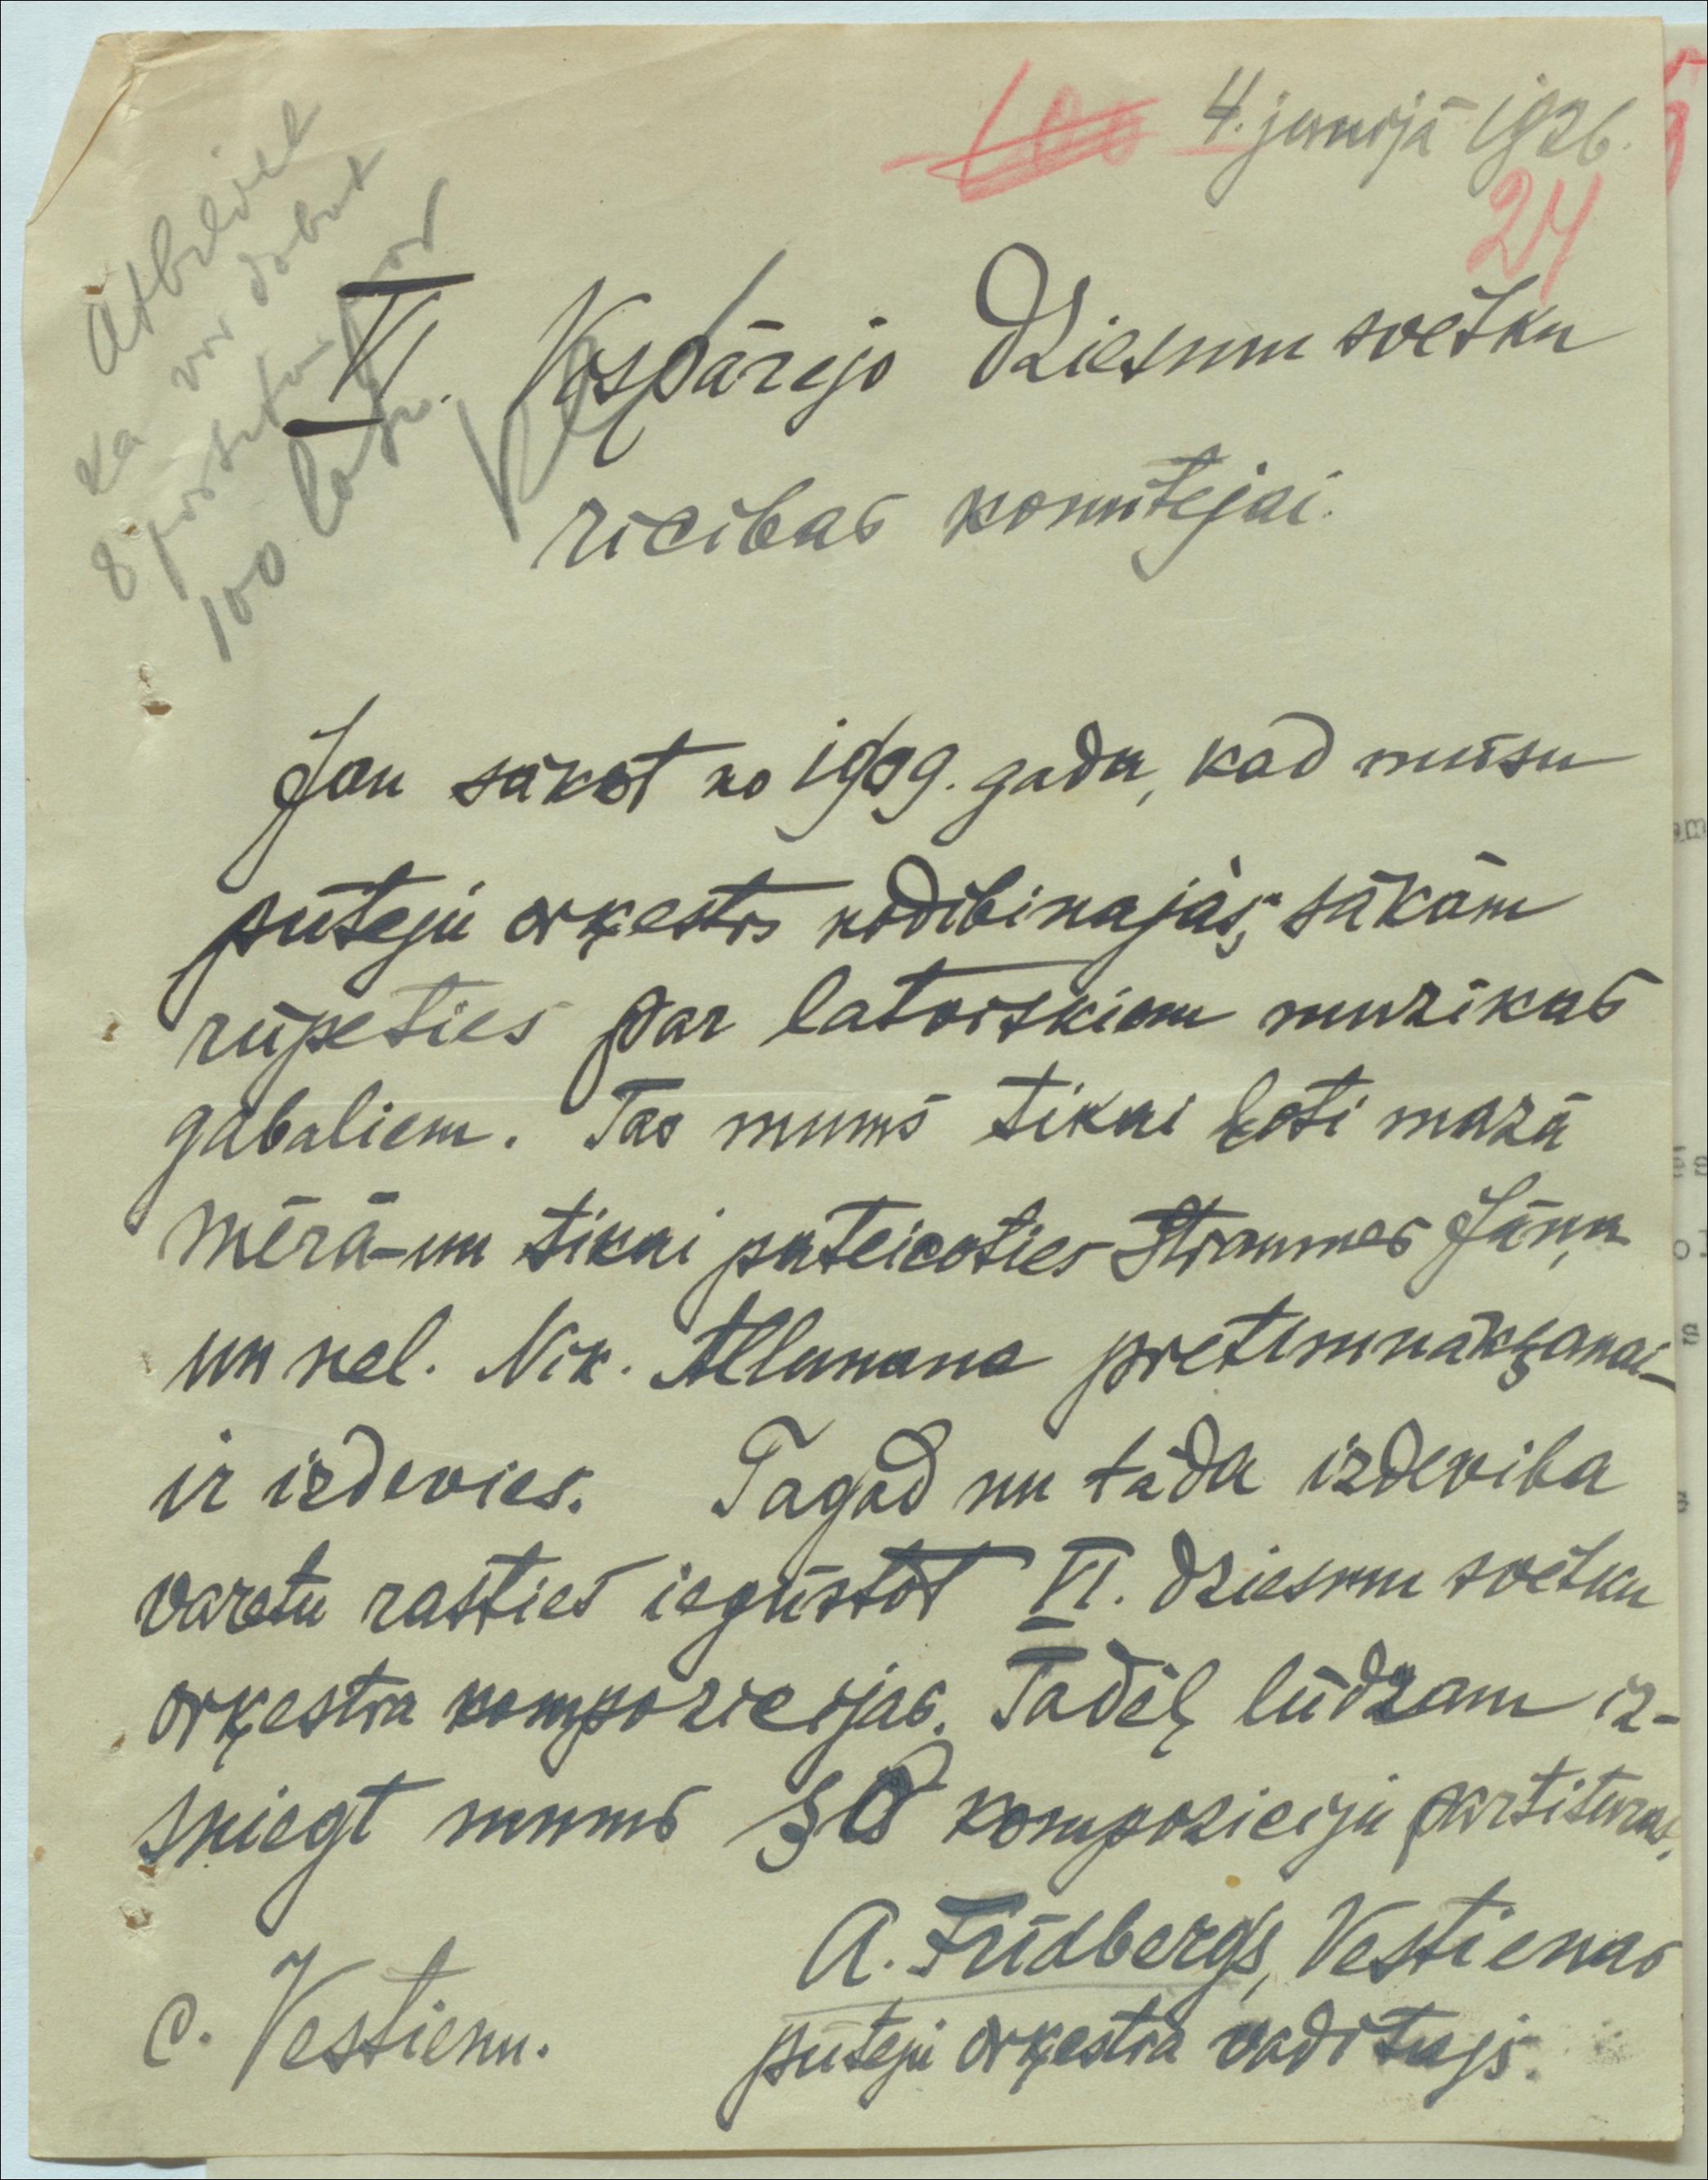 4. junijā 1926.
24
Atbildēt
ka var dabut
8 par
100 lat.
VI. Vispārejo Dziesmu svētku
ricibas komitejai.
Jau sākot no 1909. gada, kad mūsu
pūteju orķestrs nodibinajās, sākām
rūpeties par latviskiem muzikas
gabaliem. Tas mums tikai ļoti mazā
mērā-un tikai pateicoties Straumes Jāņa
un nel. Nik. Allunana pretimnākšanai-
ir izdevies. Tagad nu tāda izdeviba
varetu rasties iegūstot VI. dziesmu svētku
orķestra kompozicijas. Tadēļ lūdzam iz-
sniegt mums šo kompoziciju partituras.
A. Frīdbergs, Vestienas
pūteju orķestra vaditajs.
c. Vestienu.